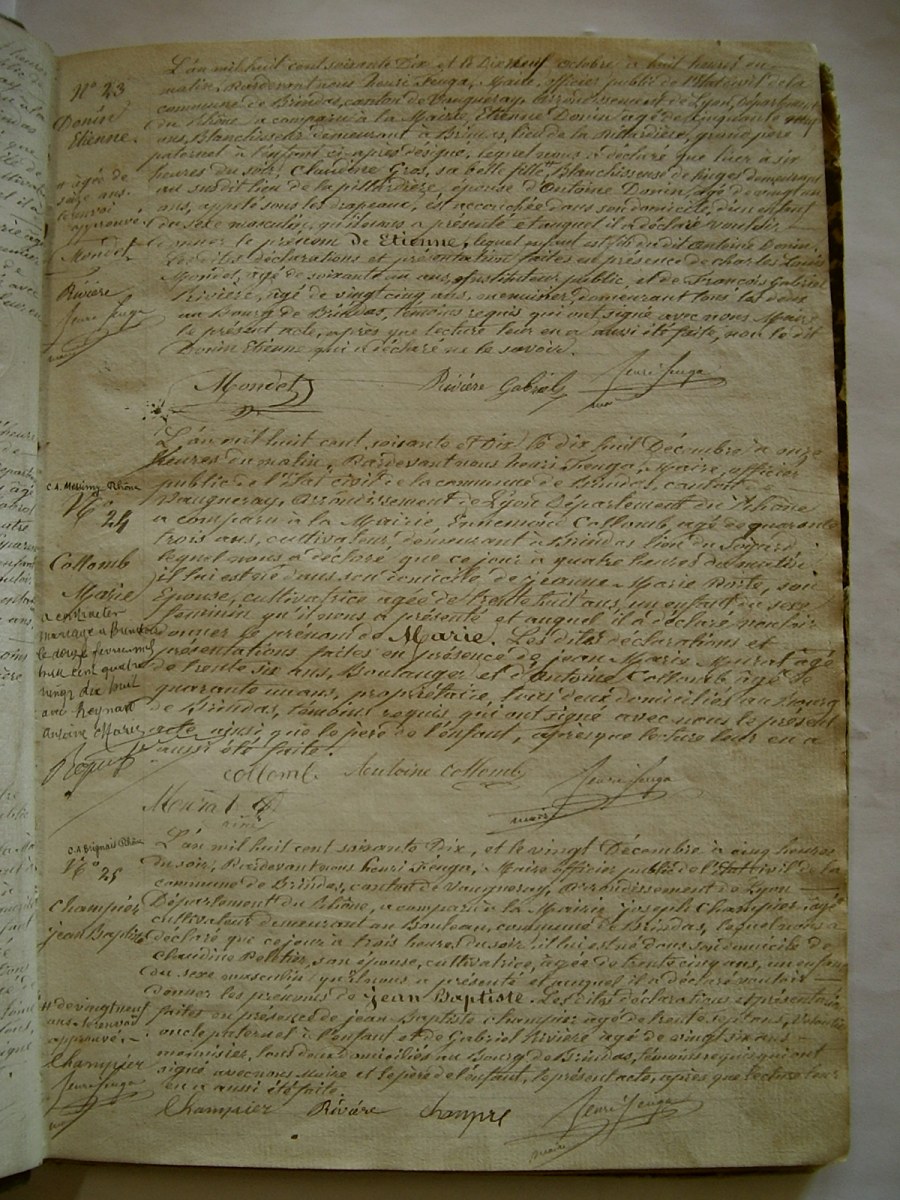 N° 23
Donin
Etienne.
# âgée de
seize ans.
renvoi
approuvé.
Mondet
Rivière
henri Feuga
maire
L'an mil huit cent soixante Dix et le Dix neuf octobre à huit heures du
matin, Pardevant nous henri Feuga, Maire, officier public de l'état civil de la
commune de Brindas, canton de Vaugneray, Arrondissement de Lyon, Département
du Rhône a comparu à la Mairie, Etienne Donin âgé de cinquante neuf
ans, Blanchisseur demeurant à Brindas, lieu de la pillardière, grand père
paternel à l'enfant ci-après désigné, lequel nous a déclaré que hier à six
heures du soir, Claudine Gros, sa belle fille #, Blanchisseuse de linges demeurant
au susdit lieu de la pillardière, épouse d'Antoine Donin, âgé de vingt un
ans, appelé sous les drapeaux, est accouchée dans son domicile, d'un enfant
du sexe masculin, qu'il nous a présenté et auquel il a déclaré vouloir
donner le prénom de Etienne, lequel enfant est fils du dit Antoine Donin.
Les dites déclarations et présentation faites en présence de charles Louis
Mondet, âgé de soixante un ans, Instituteur public, et de François Gabriel
Rivière, âgé de vingt cinq ans, menuisier, demeurant tous les deux
au Bourg de Brindas, témoins requis qui ont signé avec nous Maire
le présent acte, après que lecture leur en a aussi été faite, non le dit
Donin Etienne qui a déclaré ne le savoir.
Mondet Rivière Gabriel henri Feuga
maire
C.A. Messimy Rhône
N° 24
Collomb
Marie
a contracter
mariage a Brindas
le douze fevrier mil
huit cent quatre
vingt dix huit
avec Reynard
Antoine Marie
L'an mil huit cent soixante et Dix, le dix huit Décembre à onze
heures du matin, Pardevant nous henri Feuga, Maire, officier
public de l'Etat civil de la commune de Brindas, canton de
Vaugneray, Arrondissement de Lyon Département du Rhône
a comparu à la Mairie, Ennemond Collomb, âgé de quarante
trois ans, cultivateur demeurant à Brindas lieu du
lequel nous a déclaré que ce jour à quatre heures du matin
il lui est né dans son domicile, de Jeanne Marie son
Epouse, cultivatrice agée de trente huit ans, un enfant du sexe
féminin qu'il nous a présenté et auquel il a déclaré vouloir
donner le prénom de Marie. Les dites déclarations et
présentations faites en présence de jean Marie Meurat âgé
de trente six ans, Boulanger et d'Antoine Collomb âgé de
quarante un ans, propriétaire, tous deux domiciliés au Bourg
de Brindas, témoins requis qui ont signé avec nous le présent
acte ainsi, que le père de l'enfant, après que lecture leur en a
aussi été faite.
collomb Antoine Collomb henri Feuga
Meurat maire
C.A Brignais Rhône
N° 25
Champier
jean Baptiste
# de vingt neuf
ans. renvoi
approuvé. -
Champier
henri Feuga
L'an mil huit cent soixante Dix, et le vingt Décembre à cinq heures
du soir, Pardevant nous henri Feuga, Maire officier public de l'Etat civil de la
commune de Brindas, canton de Vaugneray, Arrondissement de Lyon
Département du Rhône, a comparu à la Mairie joseph Champier âgé #
cultivateur demeurant au Bouleau, commune de Brindas, lequel nous a
déclaré que ce jour à trois heures du soir il lui est né dans son domicile de
Claudine Peletier, son épouse, cultivatrice, âgée de trente cinq ans, un enfant
du sexe masculin qu'il nous a présenté et auquel il a déclaré vouloir
donner les prénoms de jean Baptiste. Les dites déclarations et présentation
faites en présence de jean Baptiste champier âgé de trente sept ans,
oncle paternel à l'enfant et de Gabriel Rivière âgé de vingt six ans
menuisier, tous deux Domiciliés au Bourg de Brindas, témoins requis qui ont
signé avec nous Maire et le père de l'enfant, le présent acte, après que lecture leur
en a aussi été faite.
Champier Rivière henri Feuga
maire